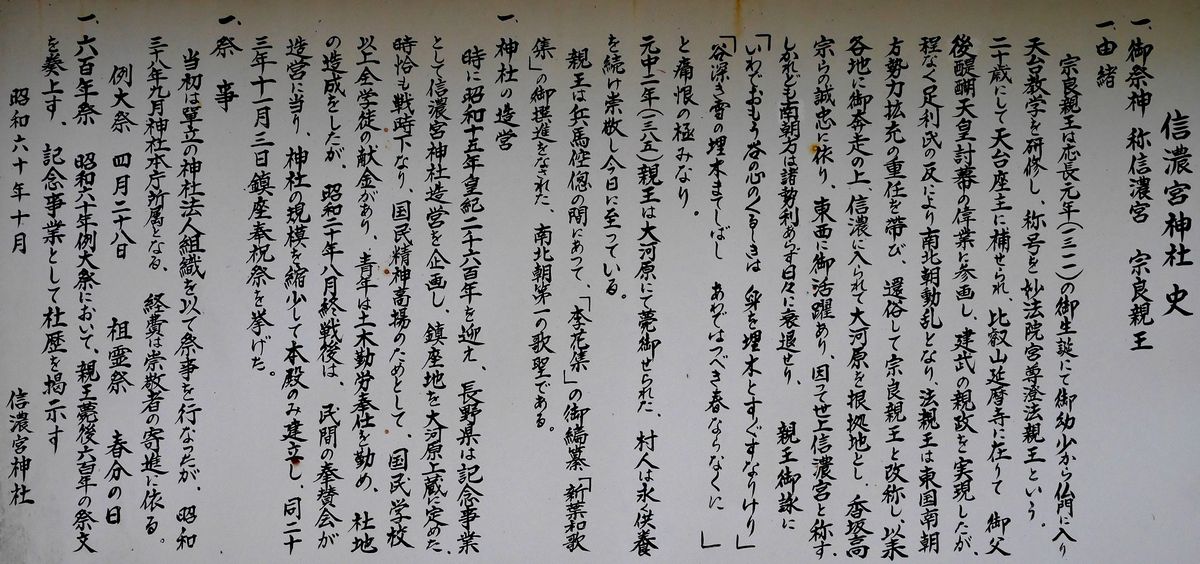 信濃宮神社史
一、御祭神　称信濃宮　宗良親王
一、由緒
宗良親王は応長元年(一三一一)の御生誕にて御幼少から仏門に入り
天台教学を研修し、称号を妙法院宮尊澄法親王という。
二十歳にして天台座主に補せられ、比叡山延暦寺に在りて　御父
後醍醐天皇討幕の偉業に参画し、建武の親政を実現したが、
程なく足利氏の反により南北朝動乱となり、法親王は東国南朝
方勢力拡充の重任を帯び、還俗して宗良親王と改称し、以来
各地に御奔走の上、信濃に入られて大河原を根拠地とし　香坂高
宗らの誠忠に依り、東西に御活躍あり、因って世上信濃宮と称す。
しかれども南朝方は諸勢利あらず日々に衰退せり、　親王御詠に
「いわでおもう谷の心のくるしきは　身を埋木とすぐすなりけり」
「谷深き雪の埋木まてしばし　あわではつべき春ならなくに　」
と痛恨の極みなり。
元中二年(一三八五)親王は大河原にて薨御せられた、村人は永く供養
を続け崇敬し今日に至っている。
親王は兵馬倥偬の間にあって、「李花集」の御編纂「新葉和歌
集」の御撰進をなされた、南北朝第一の歌聖である。
一、神社の造営
時に昭和十五年皇紀二千六百年を迎え、長野県は記念事業
として信濃宮神社造営を企画し、鎮座地を大河原上蔵に定めた、
時恰も戦時下なり、国民精神高揚のためとして、国民学校
以上全学徒の献金があり、青年は土木勤労奉仕を勤め、社地
の造成をしたが、昭和二十年八月終戦後は、民間の奉賛会が
造営に当り、神社の規模を縮少して本殿のみ建立し、同二十
三年十一月三日鎮座奉祝祭を挙げた。
一、祭　事
当初は単立の神社法人組織を以て祭事を行なったが、昭和
三十八年九月神社本庁所属となる、経費は崇敬者の寄進に依る。
例大祭　四月二十八日　祖霊祭　春分の日
一、六百年祭　昭和六十年例大祭において、親王薨後六百年の祭文
を奏上す、　記念事業として社歴を掲示す
昭和六十年十月　　信濃宮神社